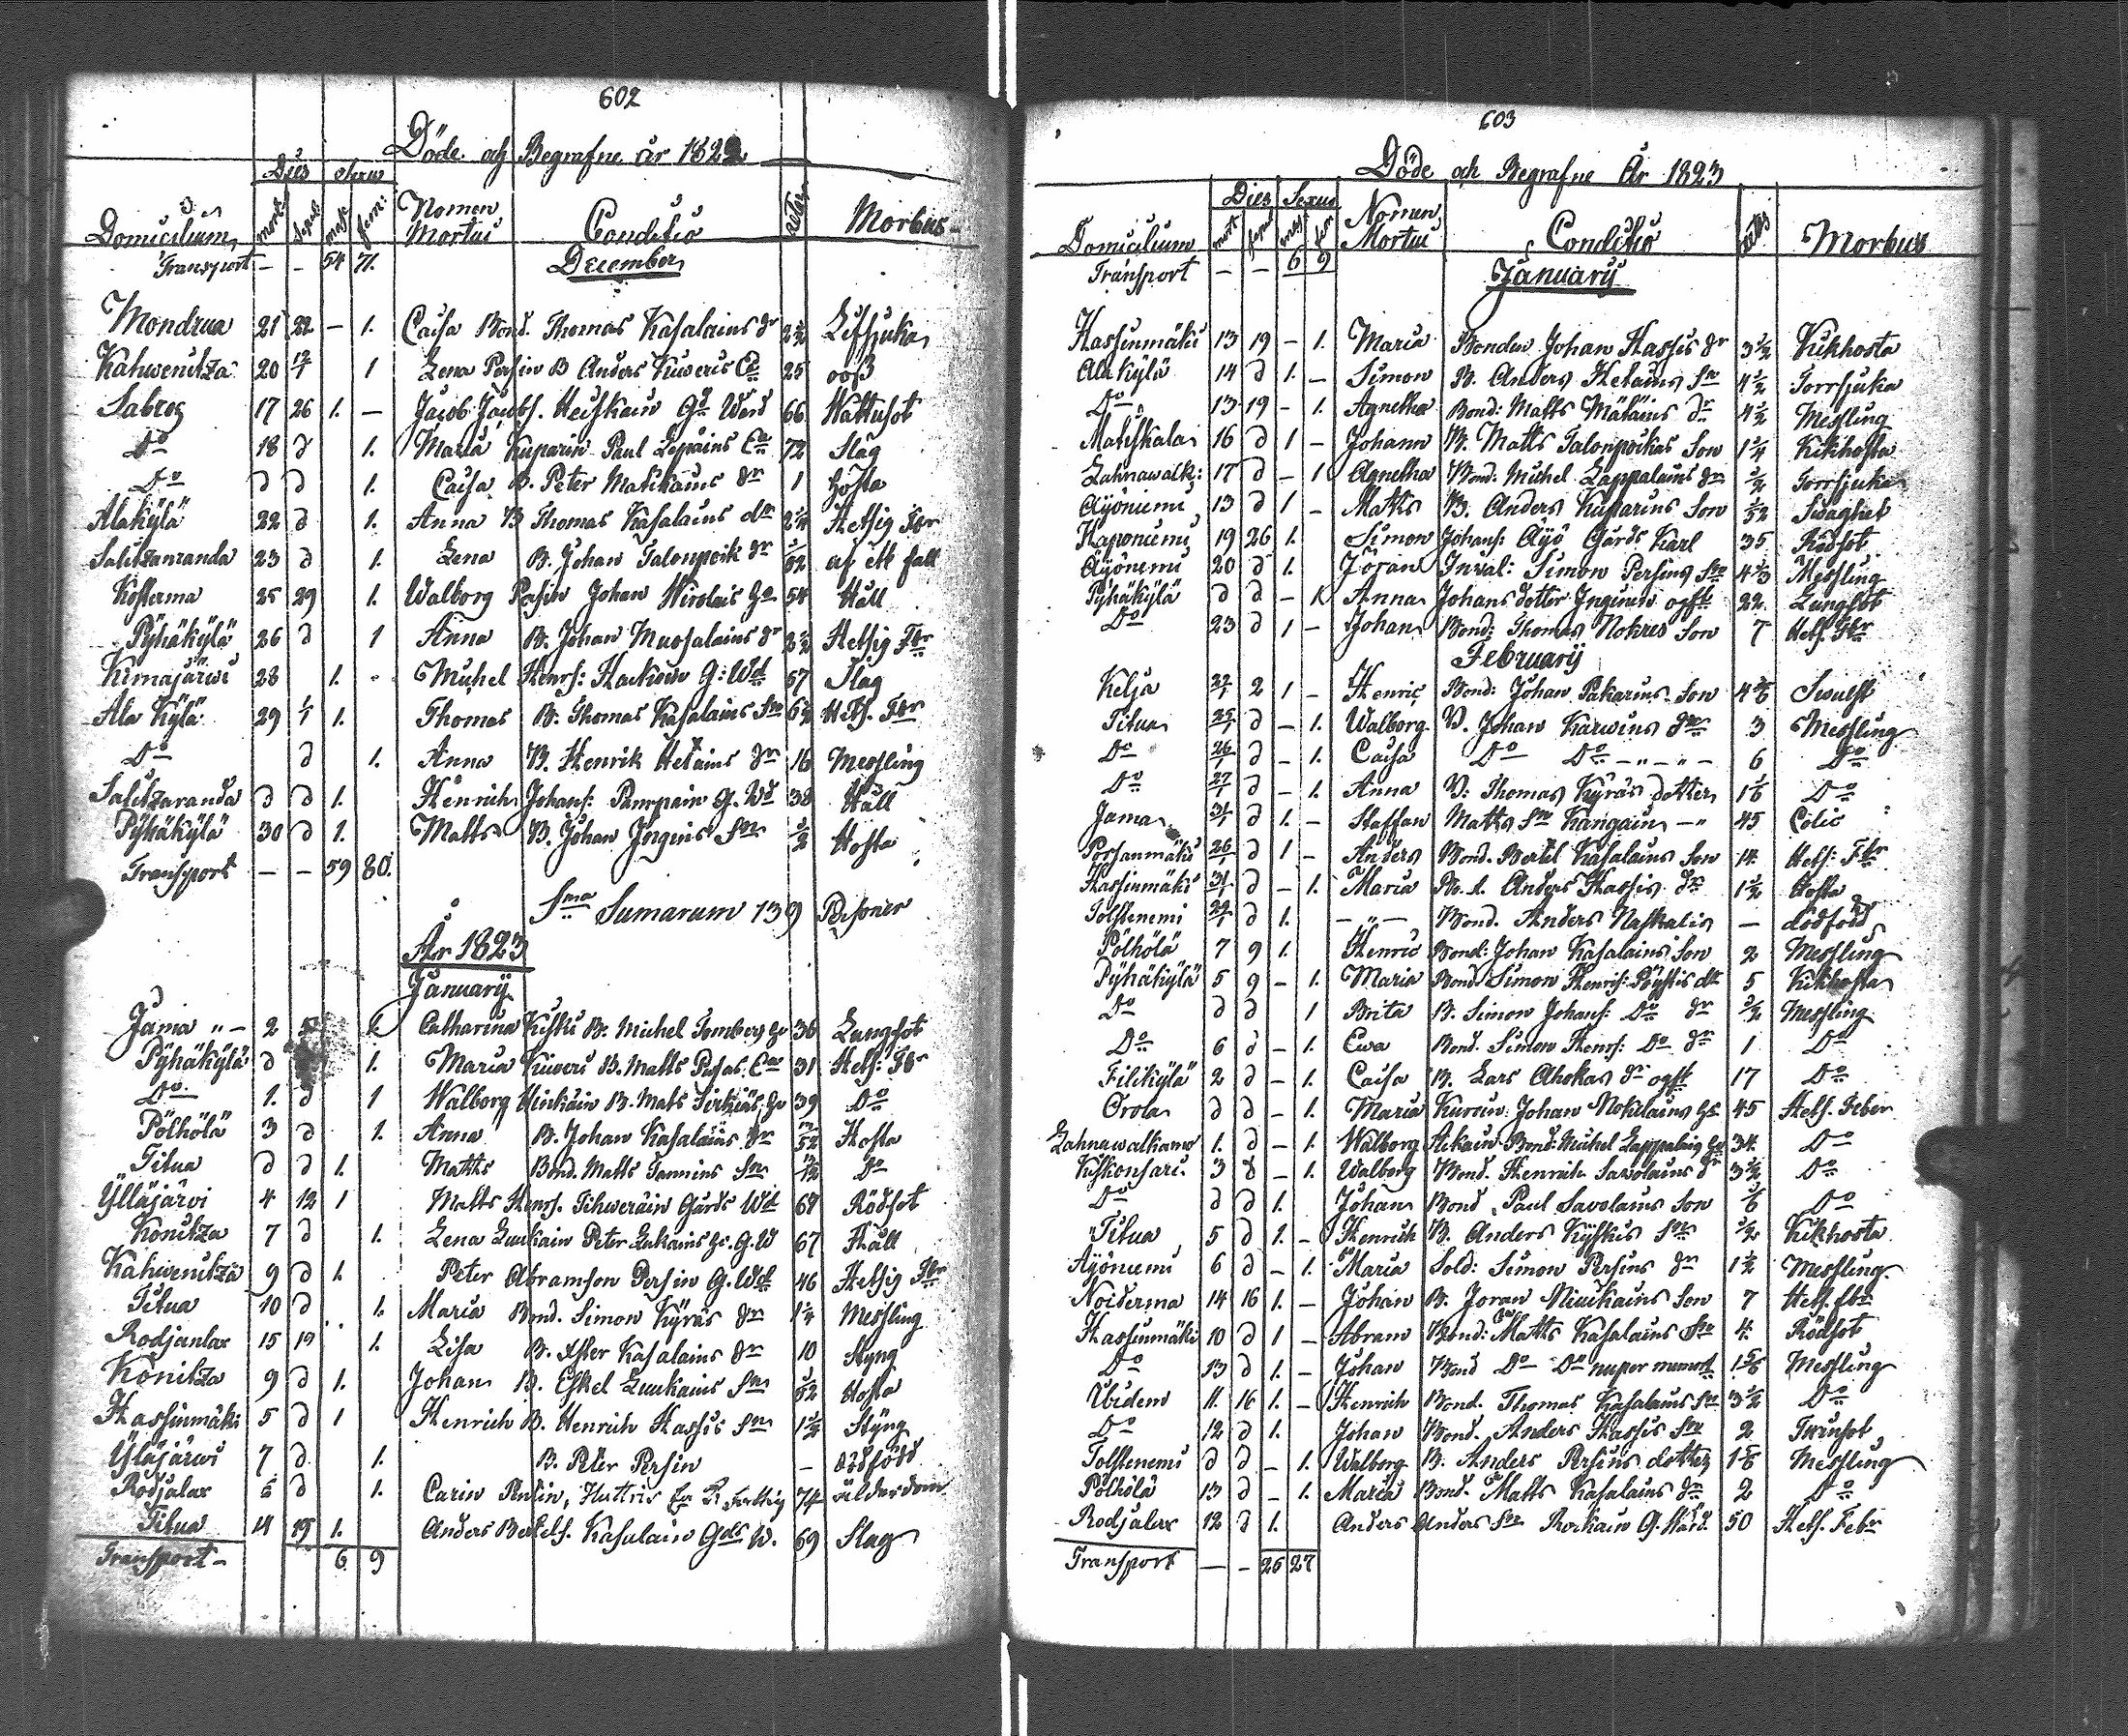 602
Döde och Begrafne år 1822
Dies Sexus
Domicilium mort: sepul: mask: fem: Nomen Mortui Conditio Aetas Morbus
Transport – – 54 71. December
Mondrua 21 22 – 1. Caisa Bond. Thomas Kasalains dr 2 1/2 Lifsjuka
Kahwenitza 20 12/1 1 Lena Persin B Anders Kiweris 25
Sabrog 17 26 1. – Jacob Jacobs. Heiskain Gd Werd 66 Wattusot
Do 18 d 1. Maria Kuparin Paul 72 Slag
Do d d 1. Caisa B. Peter Matikains dr 1 Hosta
Alakylä 22 d 1. Anna B Thomas Kasalains dr 2 1/4 Hetsig Fbr
Salitzanranda 23 d 1. Lena B. Johan Talonpoik dr af ett fall
Kosterma 25 29 1. Walborg Persin Johan Wirolais 54 Håll
Pyhäkylä 26 d 1 Anna B. Johan Mussalains dr 2 1/2 Hetsig Fbr
Kirnajärwi 28 1. Michel Henrs: Hackain G: Wd 57 Slag
Ala Kylä 29 1/1 1. Thomas B. Thomas Kasalains Sn 6 1/2 Hets. Fbr
Do d 1. Anna B. Henrik Hetains dr 16 Messling
Salitzaranda d d 1. Henrich Johans: Pampain G. Wd 38 Håll
Pyhäkylä 30 d 1. Matts B. Johan Inginis Sn 1/2 Hosta
Transport – – 59 80.
Sma Sumarum 139 Persones
År 1823
January
Jama " – 2 Catharina Kiski B. Michel Pombers 36 Lungsot
Pyhäkylä d 1. Maria Kiweri B. Matts 31 Hets: Fbr
Do 1. d 1 Walborg Hinkain B. Mats Sirkiäs 39 Do
Pölhölä 3 d 1. Anna B. Johan Kasalains dr Hosta
Titua d d 1. Matts Bond. Matts Tannins Sn Do
Ylläjärvi 4 12 1 Matts Henrs. Tihwerain Gårds Wd 68 Rödsot
Konitza 7 d 1. Lena Luukain Peter Lukains G. W 67 Håll
Kahwenitza 9 d 1. Peter Abramson Persin G. Wd 46 Hetsig Fbr
Titua 10 d 1. Maria Bond. Simon Kyräs dr 1 1/4 Messling
Rodjanlax 15 19 1. Lisa B. Kasalains dr 10 Styng
Konitza 9 d 1. Johan B. Eskel Luukains Sn Hosta
Hassinmäki 5 d 1 Henrich B. Henrich Hassis Sn 1 1/2 Styng
Yläjärwi 7 d 1. B. Peter Persin – dödföd
Rodjalax d 1. Carin Pentin, 74 ålderdom
Titua 14 19 1. Anders Bertels. Kasalain Gds W. 69 Slag
Transport – 6 9
603
Döde och Begrafne År 1823
Dies Sexus
Domicilium mort sepul mas fem Nomen Mortui Conditio Aetas Morbus
Transport – – 6 9 January
Hassinmäki 13 19 – 1. Maria Bonden Johan Hassis dr 3 1/2 Kikhosta
Alakylä 14 d 1. – Simon B. Anders Hetains Sn 4 1/2 Torrsjuka
Do 13 19 – 1. Agnetha Bond: Matts Mätäins dr 4 1/2 Messling
Matiskala 16 d 1 – Johann B. Matts Talonpoikas Son 1 1/4 Kikhosta
Lahnawalk: 17 d – 1 Agnetha Bond. Michel Lappalains dr 1/2 Torrsjuka
Äyöniemi 13 d 1 – Matts B. Anders Kuparins Son Swaghet
Haponiemi 19 26 1. Simon Johans: Äyö Gårds Karl 35 Rödsot
Äyöniemi 20 d 1. Jöran Inval: Simon Persins Sn 4 1/3 Messling
Pyhäkylä d d – 1. Anna Johans dotter Inginen ogift 22. Lungsot
Do 23 d 1 – Johan Bond: Thomas Nokres Son 7 Hets. Fbr
February
Kelja 27/1 2 1 – Henric Bond: Johan Pakarins Son Swulst
Titua 25/1 d – 1. Walborg B. Johan Karwins dr 3 Messling
Do 26/1 d – 1. Caisa Do Do – " – " – 6 Do
Do 27/1 d – 1. Anna B: Thomas Kyräs dotter 1 1/6 Do
Jama 31/1 d 1. – Staffan Matts Sn Kangain – " 45 Colic
Porsanmäki 26/1 d 1 – Anders Bond. Bertel Kasalains Son 14. Hets: Fbr
Hassinmäki 31/1 d – 1. Maria B. Anders Hassis dr 1 1/2 Hosta
Tolstenemi 29/1 d 1. – " – Bond. Anders Naskalis – dödföd
Pölhölä 7 9 1. Henric Bond: Johan Kasalains Son 2 Messling
Pyhäkylä 5 9 – 1. Maria Bond Simon Henrs: Pöystis dr 5 Kikhosta
Do d d 1 Brita B. Simon Johans: Do dr 1/2 Messling
Do 6 d – 1. Ewa Bond. Simon Henrs: Do dr 1 Do
Tilikylä 2 d – 1. Caisa B. Lars Ahokas dr ogft 17 Do
Orola d d – 1. Maria Kuroin Johan Nokelains 45 Hets. Feber
Lahnawalkama 1. d – 1. Walborg Bond: Michel Lappalais 34. Do
Kiskonsari 3 d – 1. Walborg Bond. Henrich Savolains dr 3 1/2 Do
Do d d 1. Johan Bond. Paul Savolains Son Do
Titua 5 d 1. – Henrich B. Anders Kyskis Sn 1/2 Kikhosta
Äyöniemi 6 d – 1. Maria Sold: Simon Persins dr 1 1/2 Messling
Noiderma 14 16 1. – Johan B. Joran Niuckains Son 7 Hets. fbr
Hassinmäki 10 d 1 – Abram Bond: Matts Kasalains Sn 4. Rödsot
Do 13 d 1. – Johan Bond Do Do nuper memort 1 5/6 Messling
Ibidem 11. 16 1. – Henrich Bond. Thomas Kasalains Sn 3 1/2 Do
Do 12 d 1. Johan Bond. Anders Hassis Sn 2 Twinsot
Tolstenemi d d – 1. Walborg B. Anders Persins dotter 1 5/6 Messling
Pölhölä 13 d – 1. Maria Bond. Matts Kasalains dr 2 Do
Rodjalax 12 d 1. Anders Anders Sn Rockain G. Wärd. 50 Hets. Febr
Transport – – 26 27